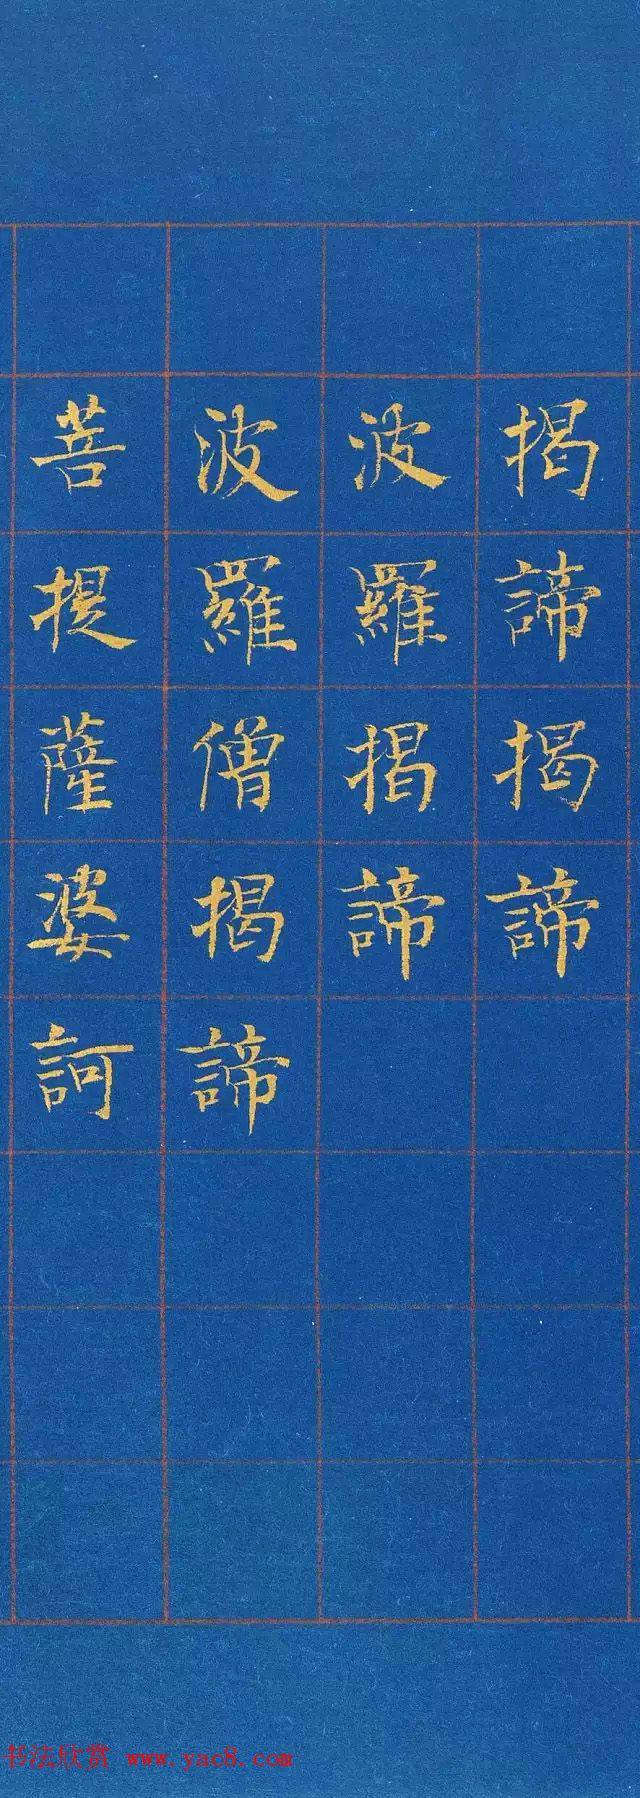 揭諦揭諦
波羅揭諦
波羅僧揭諦
菩提薩婆訶
书法欣赏 www.yac8.com